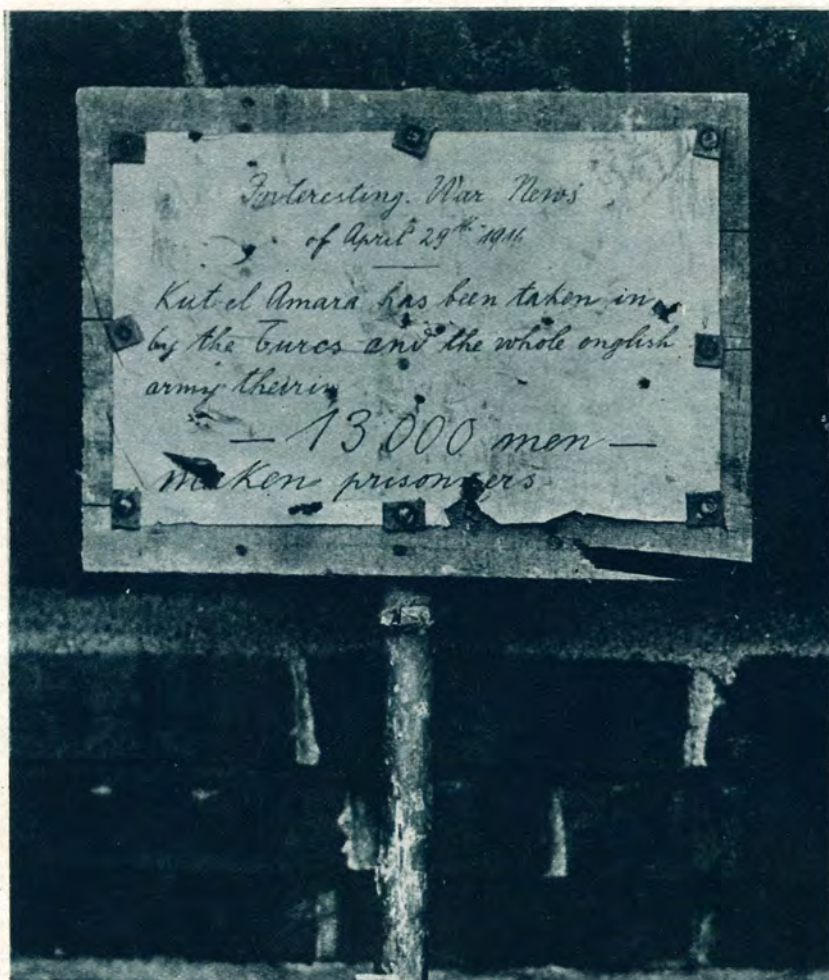 Interesting. War News
of April 29th 1916
Kut el Amara has been taken in
by the Turcs and the whole english
army therin
— 13 000 men —
maken prisonners